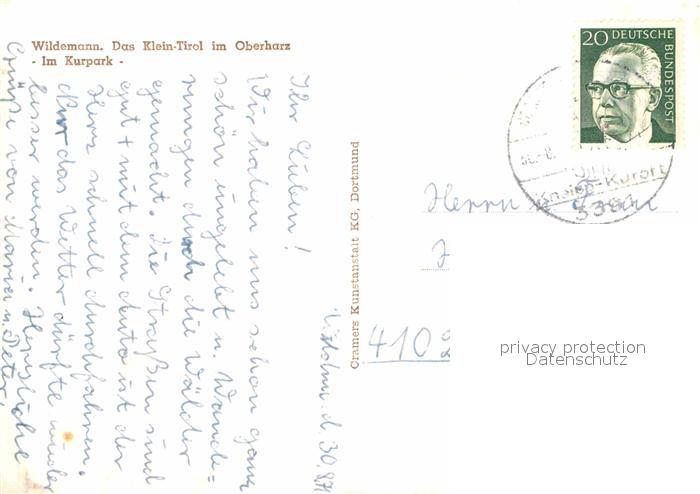 Wildemann. Das Klein-Tirol im Oberharz
- Im Kurpark -
20 DEUTSCHE
BUNDESPOST
Kneipp-Kurort
Herrn u. Frau
410
Cramers Kunstanstalt KG, Dortmund
privacy protection
Datenschutz
d. 30.8.71
Ihr Lieben!
Wir haben uns schon ganz
schön eingelebt u. Wande=
rungen durch die Wälder
gemacht. Die Straßen sind
gut + mit dem Auto ist der
Harz schnell durchfahren.
Nur das Wetter dürfte wieder
besser werden. Herzliche
Grüße von Maria u. Peter